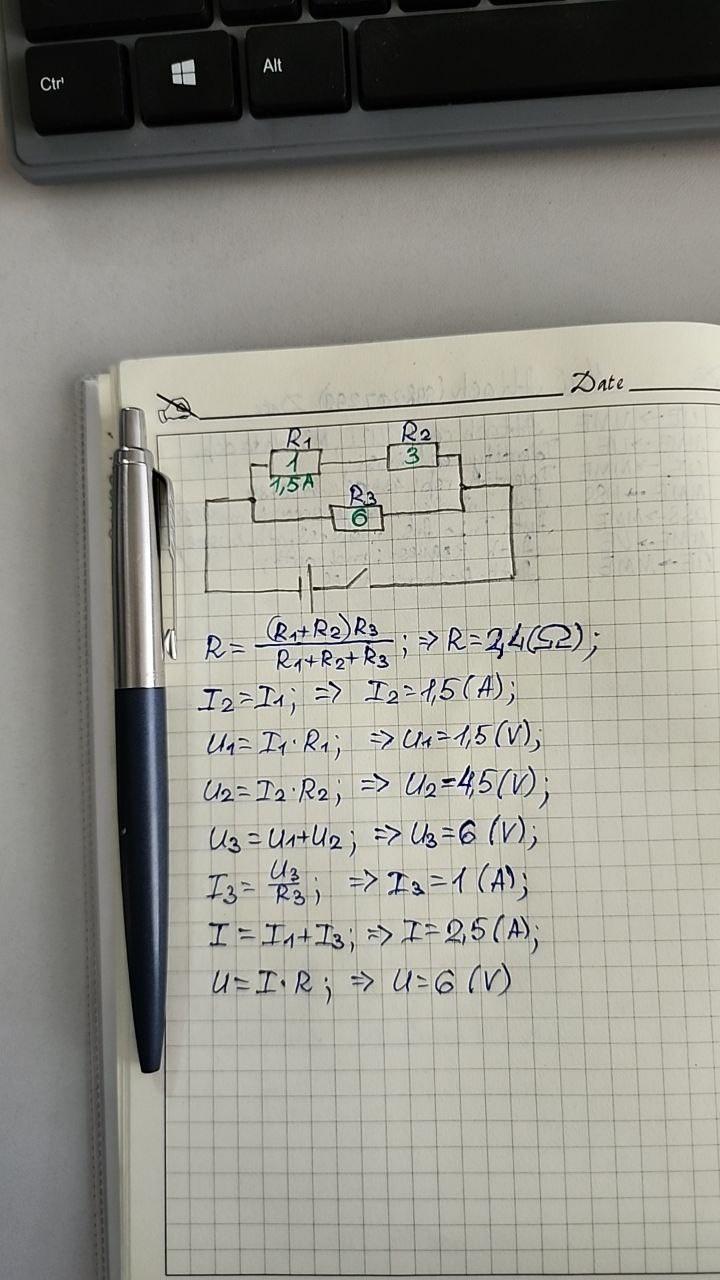 Ctrl
Alt
Date
R1
R2
1
3
1,5A
R3
6
R = (R1+R2)R3 / R1+R2+R3 ; => R = 2,4(Ω);
I2 = I1; => I2 = 1,5 (A);
U1 = I1 · R1; => U1 = 1,5 (V);
U2 = I2 · R2; => U2 = 4,5 (V);
U3 = U1+U2; => U3 = 6 (V);
I3 = U3 / R3 ; => I3 = 1 (A);
I = I1 + I3; => I = 2,5 (A);
U = I · R ; => U = 6 (V)